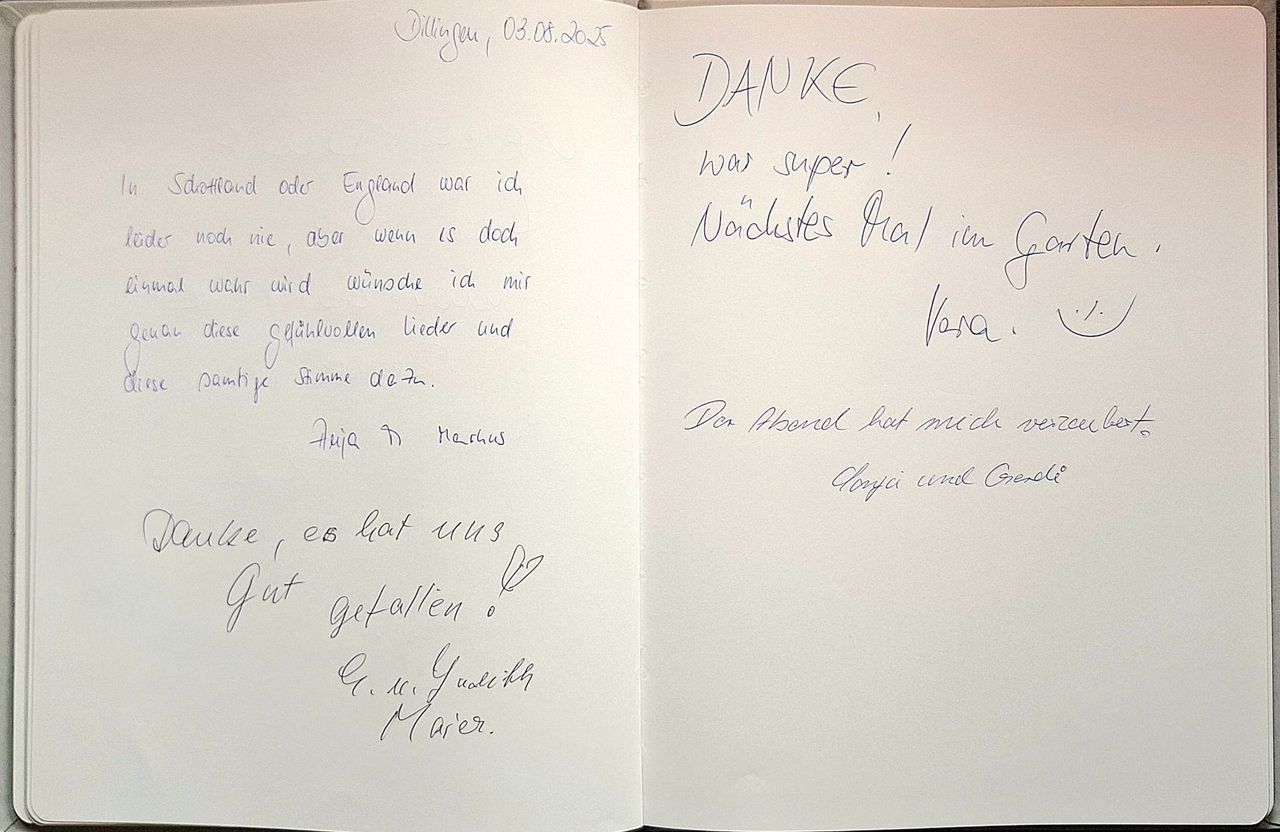 Dillingen, 03.08.2025
In Schottland oder England war ich
leider noch nie, aber wenn es doch
einmal wahr wird wünsche ich mir
genau diese gefühlvollen Lieder und
diese samtige Stimme dazu.
Anja & Markus
Danke, es hat uns
Gut gefallen!
G. u. Judith
Maier.
DANKE,
war super!
Nächstes Mal im Garten.
Vera. :)
Der Abend hat mich verzaubert.
und Gerdi